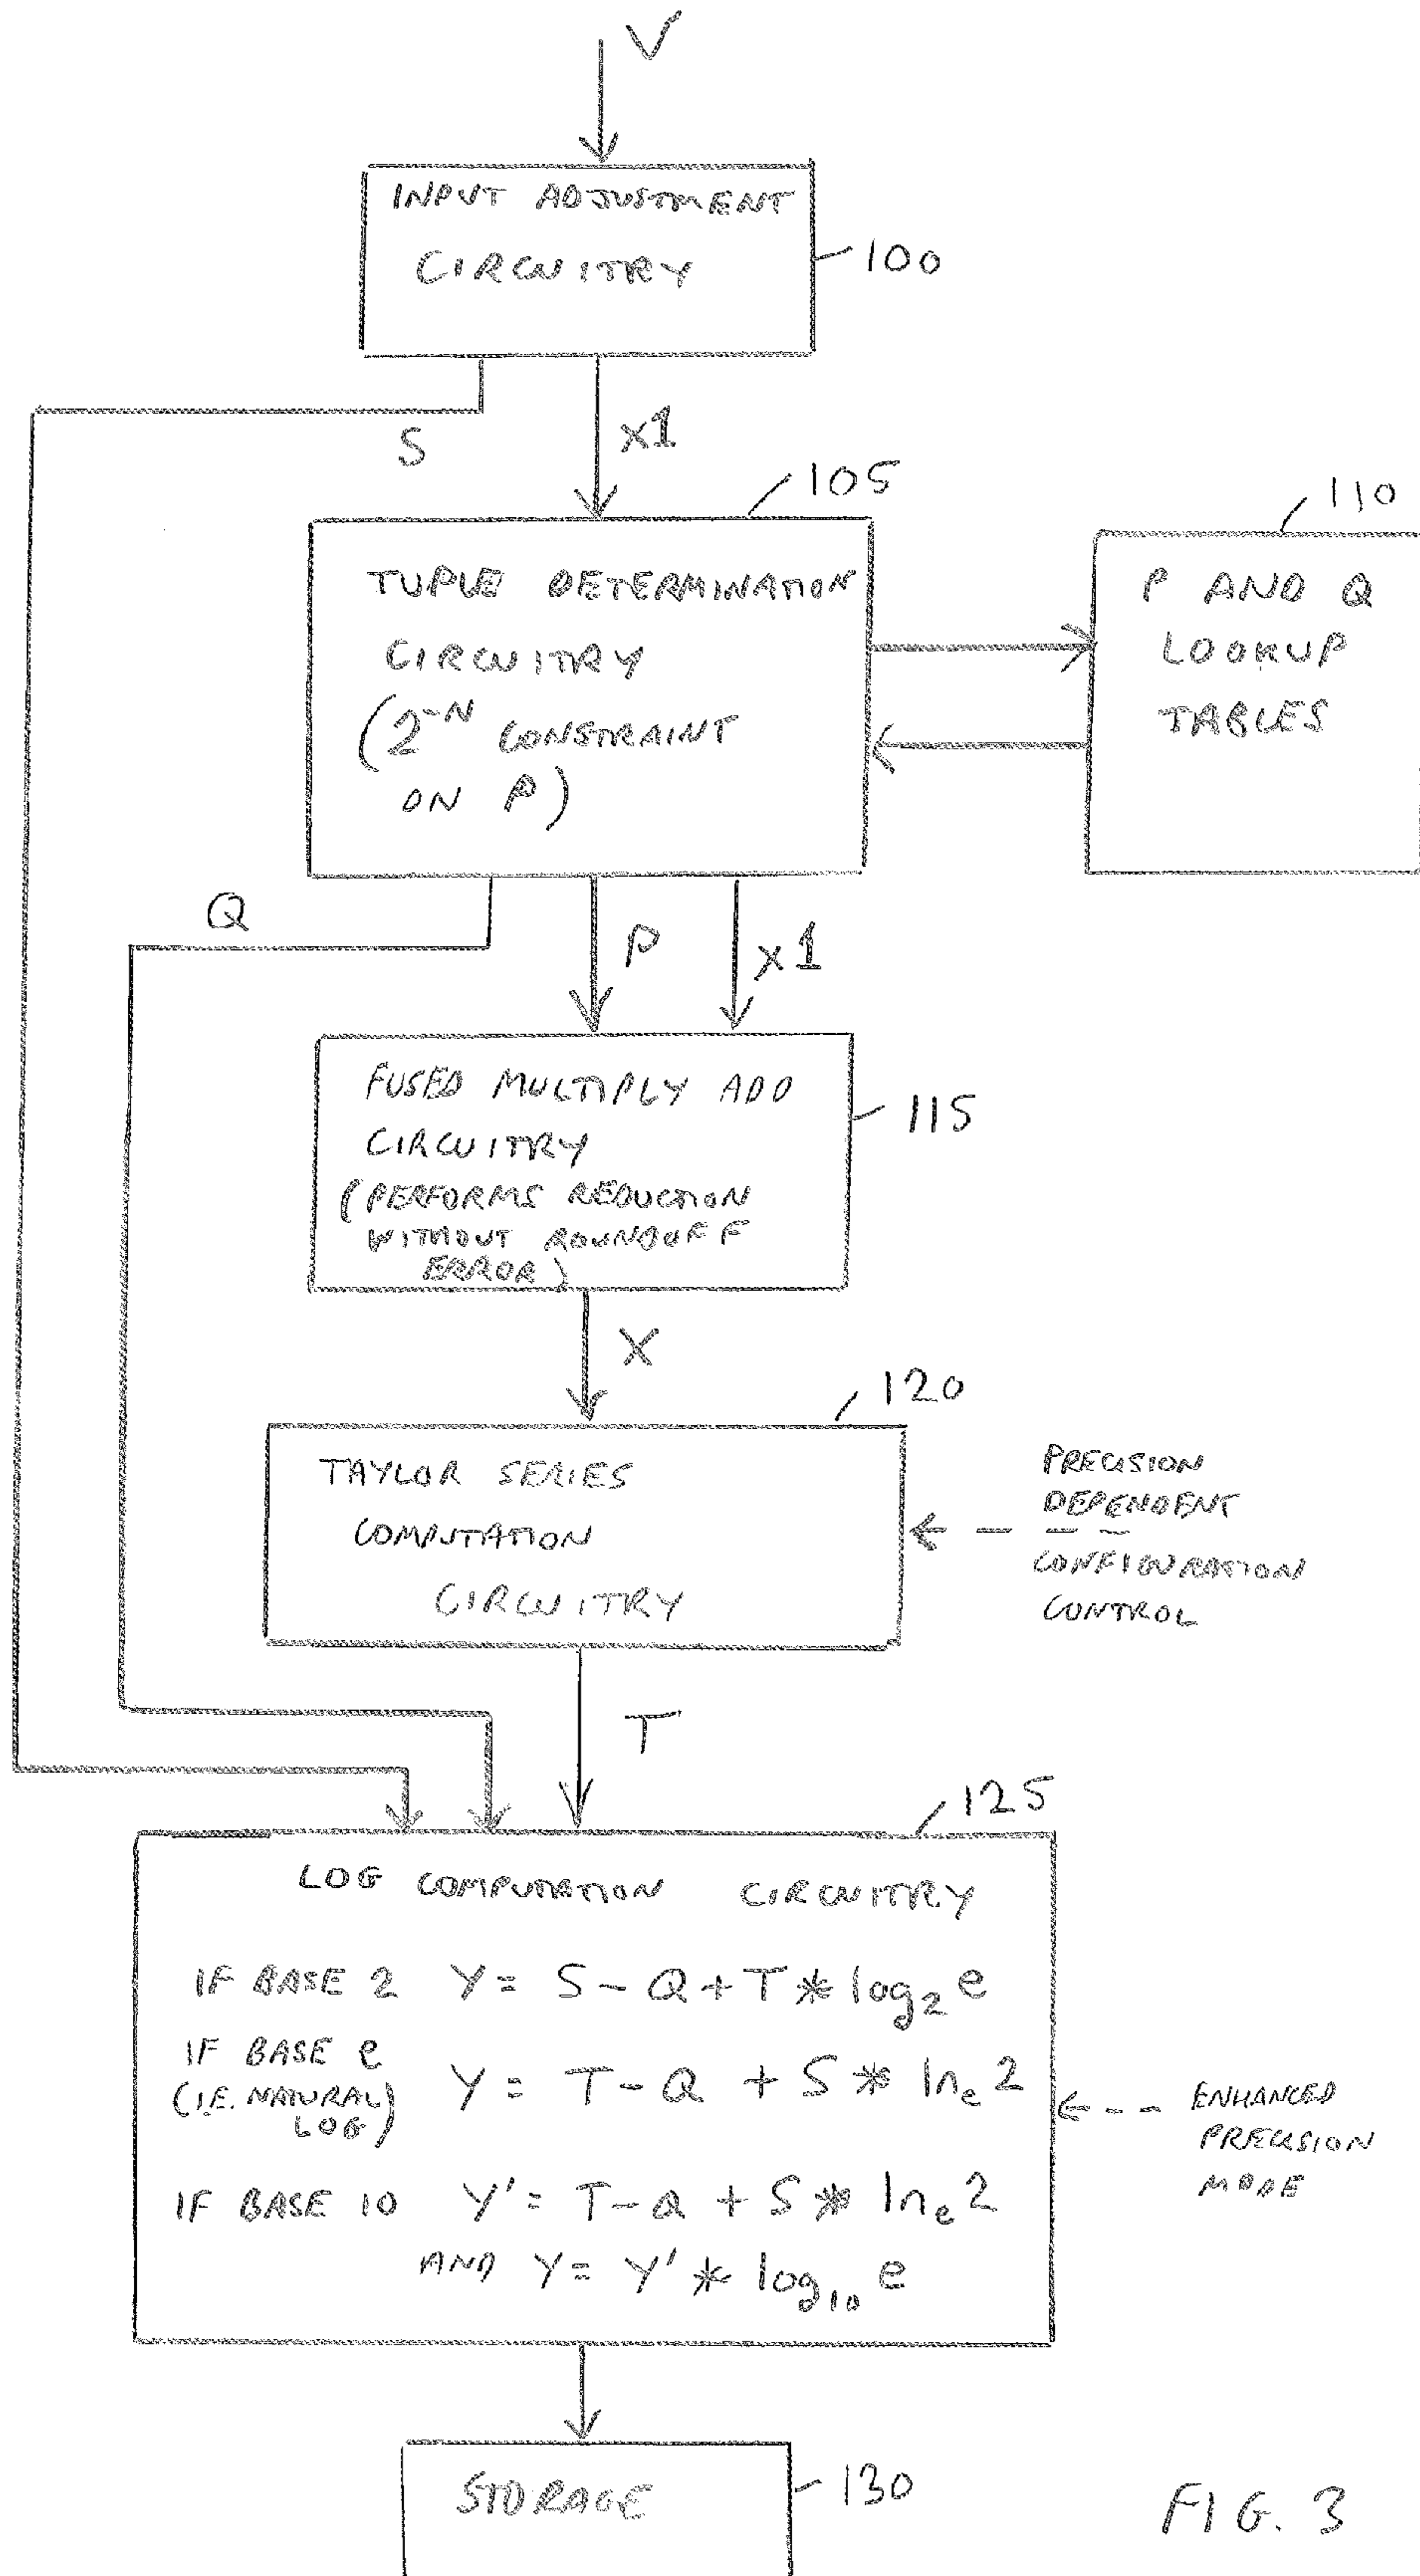 V
INPUT ADJUSTMENT
CIRCUITRY
100
S
X1
105
110
TUPLE DETERMINATION
CIRCUITRY
(2^-N CONSTRAINT
ON P)
P AND Q
LOOKUP
TABLES
Q
P
X1
FUSED MULTIPLY ADD
CIRCUITRY
(PERFORMS REDUCTION
WITHOUT ROUNDOFF
ERROR)
115
X
120
TAYLOR SERIES
COMPUTATION
CIRCUITRY
PRECISION
DEPENDENT
CONFIGURATION
CONTROL
T
125
LOG COMPUTATION CIRCUITRY
IF BASE 2 Y = S - Q + T * log₂ e
IF BASE e
(I.E. NATURAL
LOG)
Y = T - Q + S * lnₑ 2
ENHANCED
PRECISION
MODE
IF BASE 10 Y' = T - Q + S * lnₑ 2
AND Y = Y' * log₁₀ e
STORAGE
130
FIG. 3